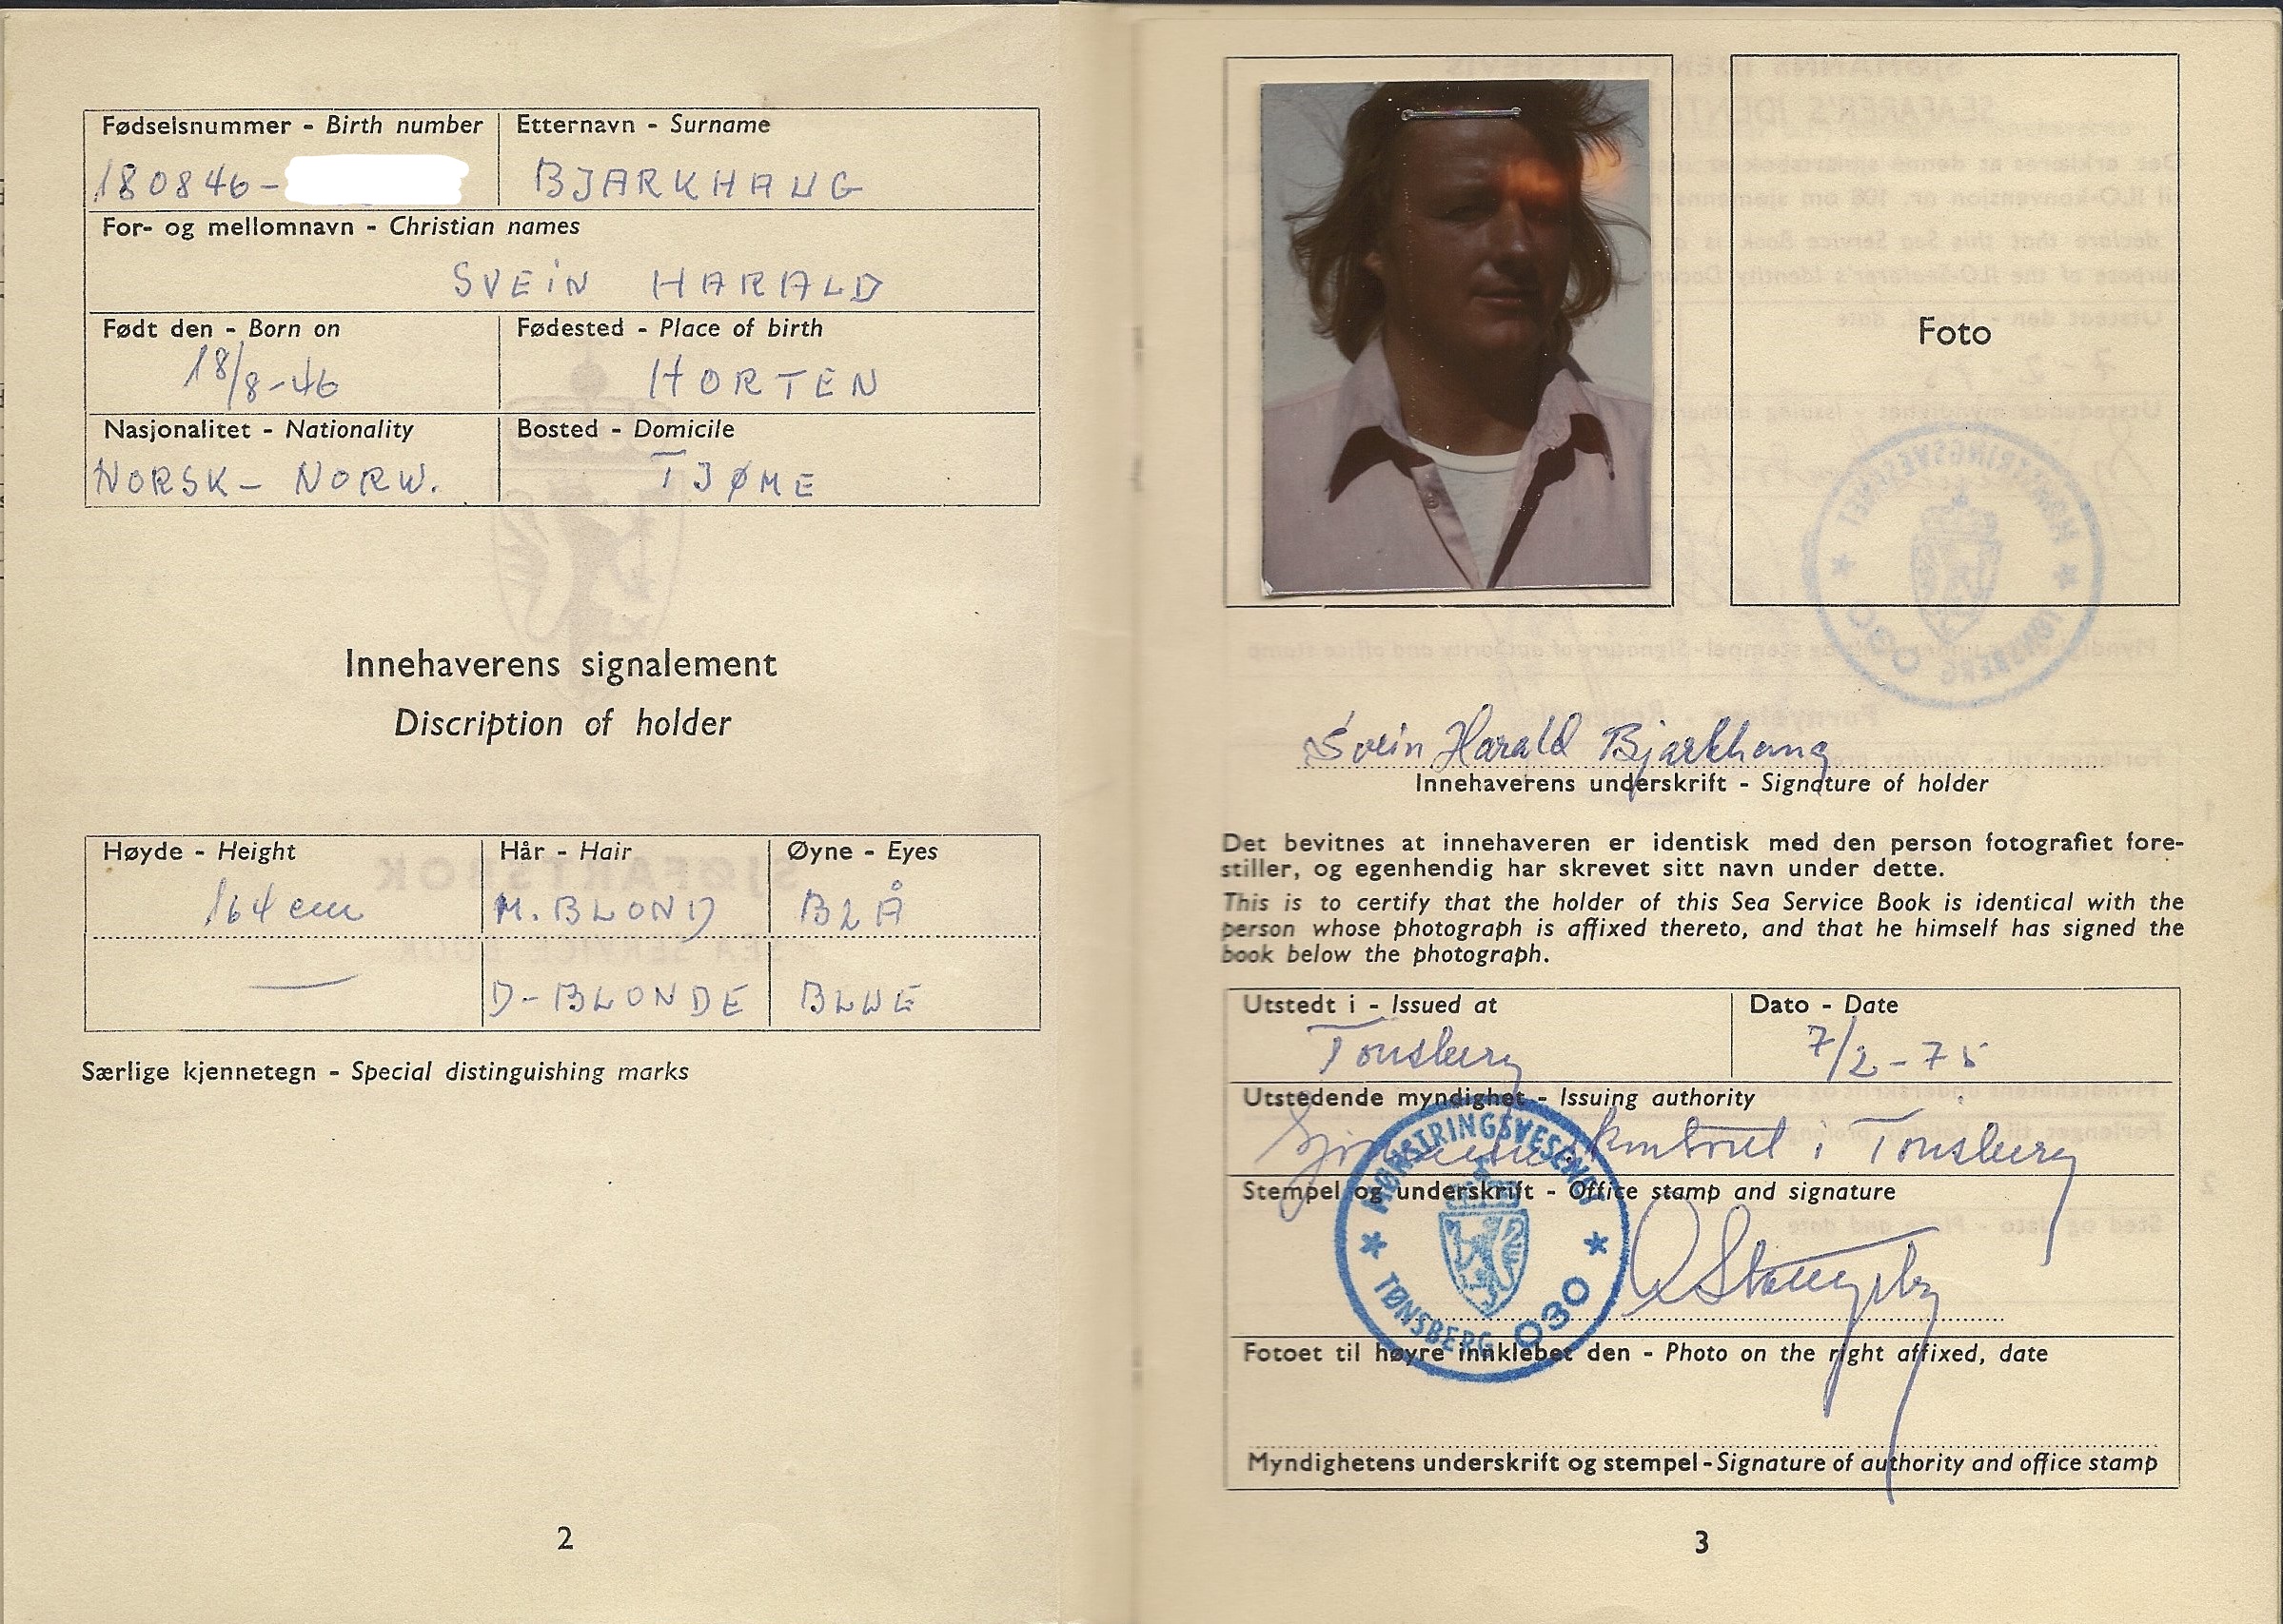 Fødselsnummer - Birth number
180846-
Etternavn - Surname
BJARKHAUG
For- og mellomnavn - Christian names
SVEIN HARALD
Født den - Born on
18/8-46
Fødested - Place of birth
HORTEN
Nasjonalitet - Nationality
NORSK - NORW.
Bosted - Domicile
TJØME
Innehaverens signalement
Discription of holder
Høyde - Height
164 cm
Hår - Hair
M. BLOND
D-BLONDE
Øyne - Eyes
BLÅ
BLUE
Særlige kjennetegn - Special distinguishing marks
2
Foto
Svein Harald Bjarkhaug
Innehaverens underskrift - Signature of holder
Det bevitnes at innehaveren er identisk med den person fotografiet fore-
stiller, og egenhendig har skrevet sitt navn under dette.
This is to certify that the holder of this Sea Service Book is identical with the
person whose photograph is affixed thereto, and that he himself has signed the
book below the photograph.
Utstedt i - Issued at
Tønsberg
Dato - Date
7/2-75
Utstedende myndighet - Issuing authority
kontoret i Tønsberg
Stempel og underskrift - Office stamp and signature
MØNSTRINGSVESENET
TØNSBERG 030
Fotoet til høyre innklebet den - Photo on the right affixed, date
Myndighetens underskrift og stempel - Signature of authority and office stamp
3